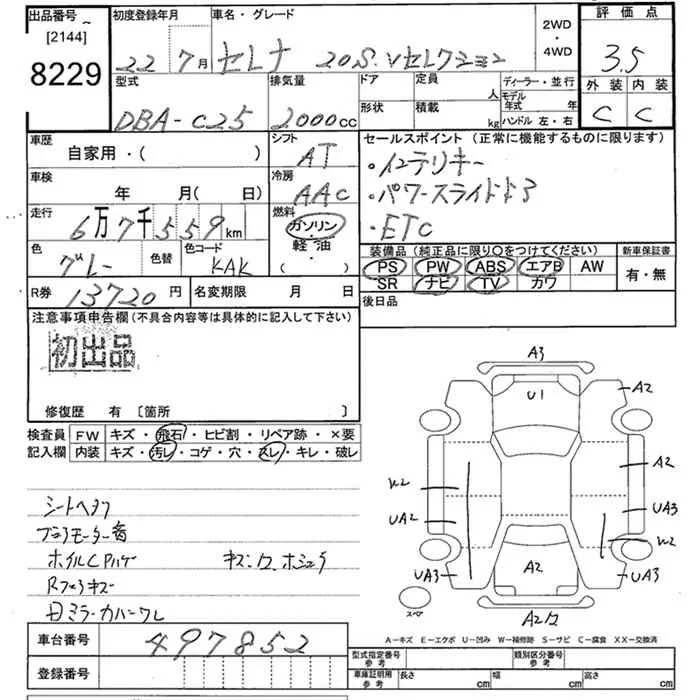 出品番号 初度登録年月 車名・グレード 2WD・4WD 評価点
[2144]
8229
22 7月 セレナ 20S.Vセレクション 3.5
型式 排気量 ドア 定員 人 ディーラー・並行 外装 内装
形状 積載 kg モデル年式 年
DBA-C25 2000cc ハンドル 左・右 C C
車歴 シフト セールスポイント(正常に機能するものに限ります)
自家用・( ) AT ・インテリキー
車検 冷房
年 月( 日) AAC ・パワースライドドア
走行 燃料
6万7千559km ガソリン・軽油・( ) ・ETC
色 色替 色コード 装備品(純正品に限り○をつけてください) 新車保証書
グレー KAK PS PW ABS エアB AW 有・無
SR ナビ TV カワ
R券 13720円 名変期限 月 日 後日品
注意事項申告欄(不具合内容等は具体的に記入して下さい)
初出品
修復歴 有 [箇所 ]
検査員 FW キズ・飛石・ヒビ割・リペア跡・×要
記入欄 内装 キズ・汚レ・コゲ・穴・スレ・キレ・破レ
シートヘタリ
ホイルCPハゲ
Rフェンダキズ
ミラーカバーワレ
A3
U1 A2
W2 A2
UA2 UA3
W2
UA3 A2 UA3
スペア
A2
A-キズ E-エクボ U-凹み W-補修跡 S-サビ C-腐食 XX-交換済
車台番号 497852
登録番号
型式指定番号 参考 類別区分番号 参考
車庫証明用 参考 長さ cm 幅 cm 高さ cm